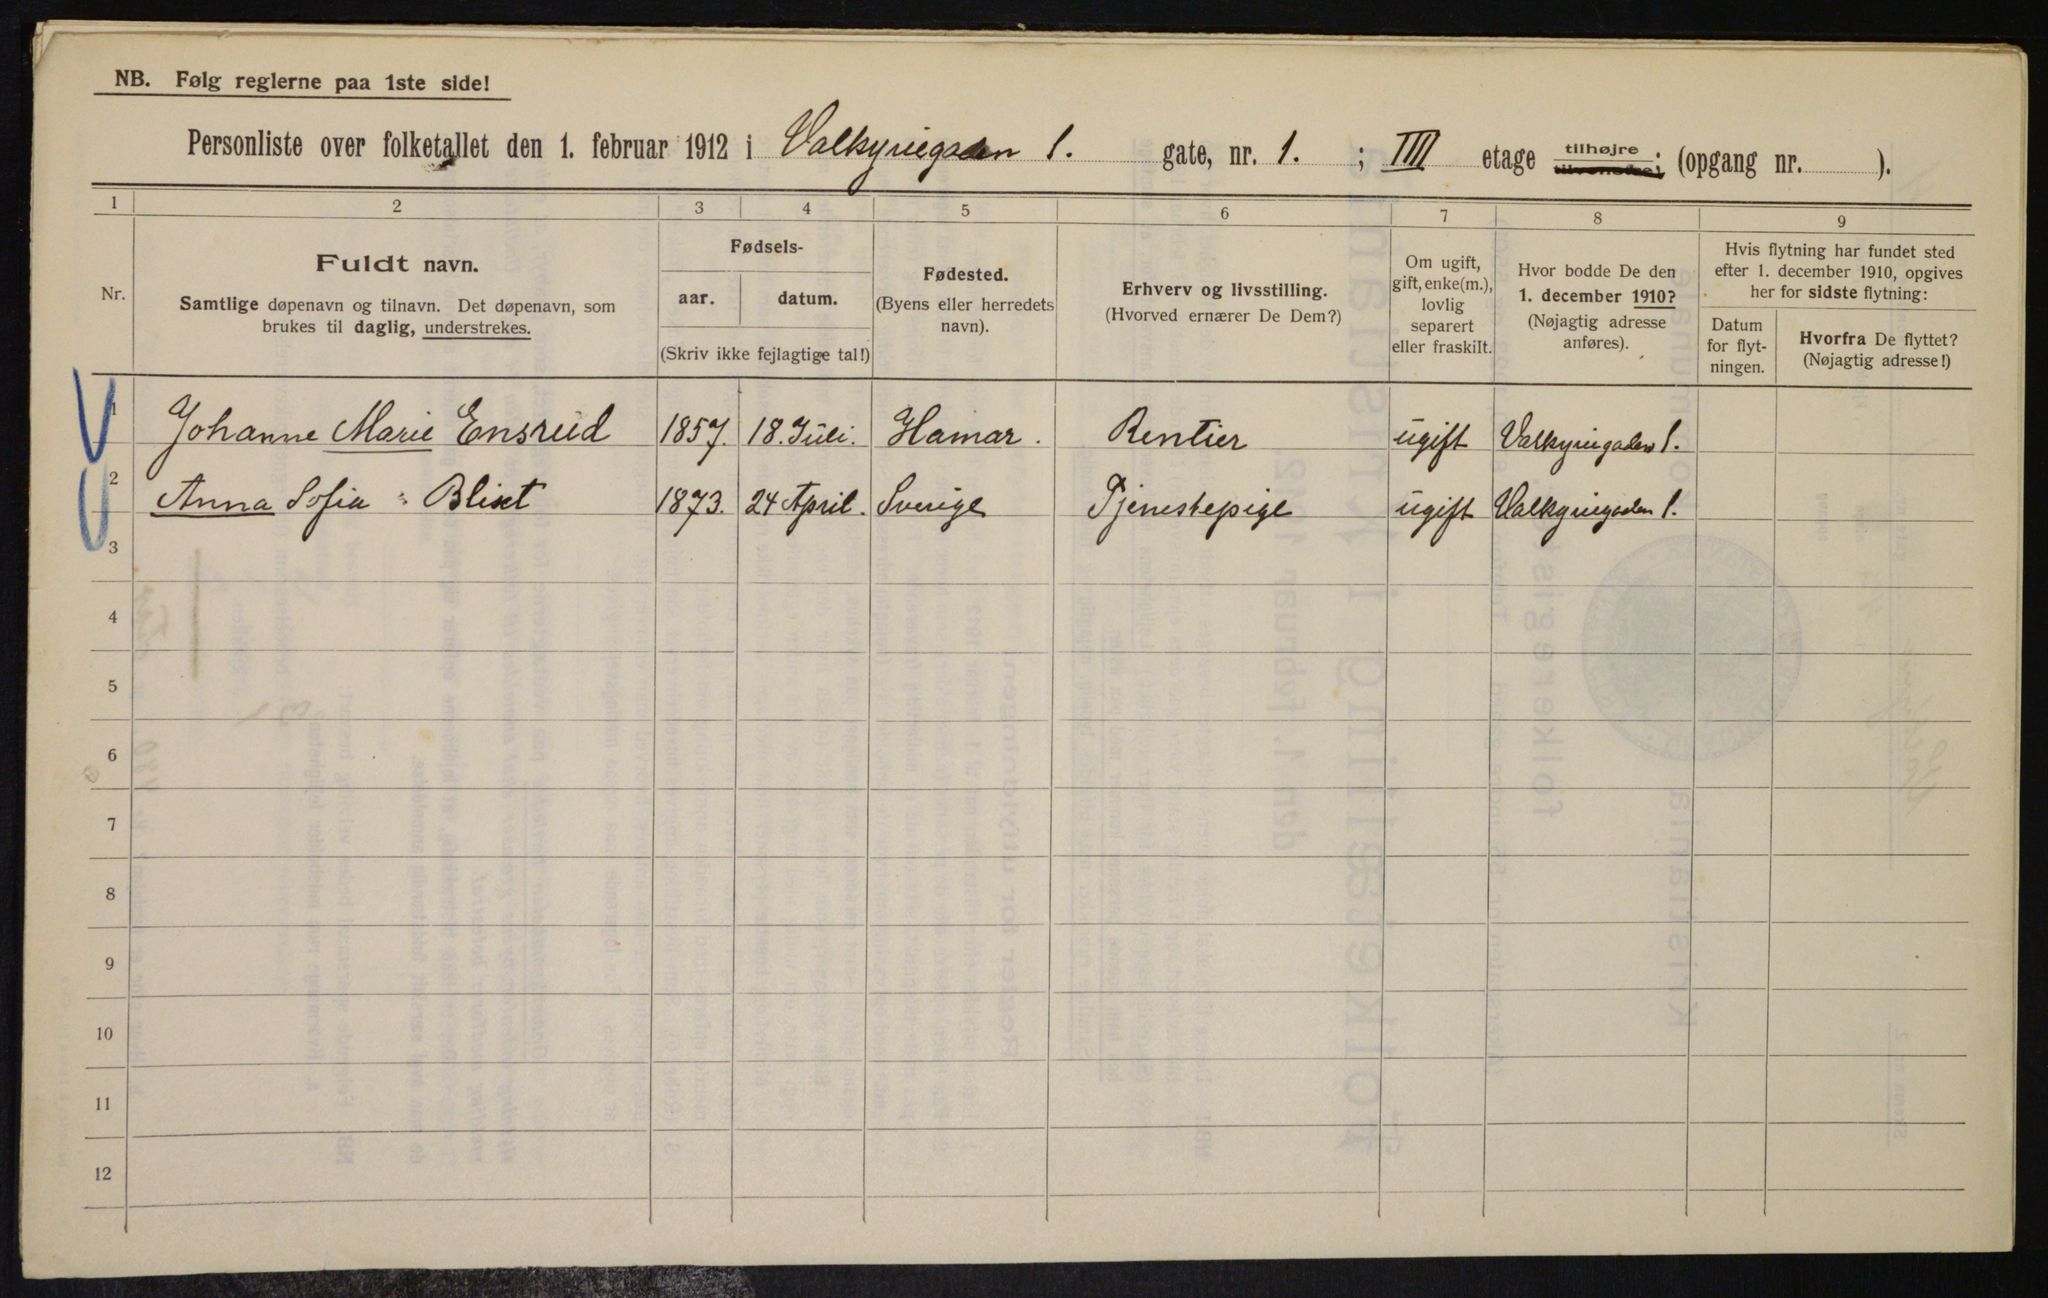 NB. Følg reglerne paa 1ste side!
Personliste over folketallet den 1. februar 1912 i Valkyriegaden 1. gate, nr. 1. ; IIII etage tilhøjre tilvenstre; (opgang nr. ).
1 2 3 4 5 6 7 8 9
Nr.
Fuldt navn.
Samtlige døpenavn og tilnavn. Det døpenavn, som
brukes til daglig, understrekes.
Fødsels-
aar. datum.
(Skriv ikke fejlagtige tal!)
Fødested.
(Byens eller herredets
navn).
Erhverv og livsstilling.
(Hvorved ernærer De Dem?)
Om ugift,
gift, enke(m.),
lovlig
separert
eller fraskilt.
Hvor bodde De den
1. december 1910?
(Nøjagtig adresse
anføres).
Hvis flytning har fundet sted
efter 1. december 1910, opgives
her for sidste flytning:
Datum
for flyt-
ningen.
Hvorfra De flyttet?
(Nøjagtig adresse!)
1 Johanne Marie Ensrud 1857. 18. Juli. Hamar. Rentier ugift Valkyriegaden 1.
2 Anna Sofia Blixt 1873. 24 April. Sverige Tjenestepige ugift Valkyriegaden 1.
3
4
5
6
7
8
9
10
11
12